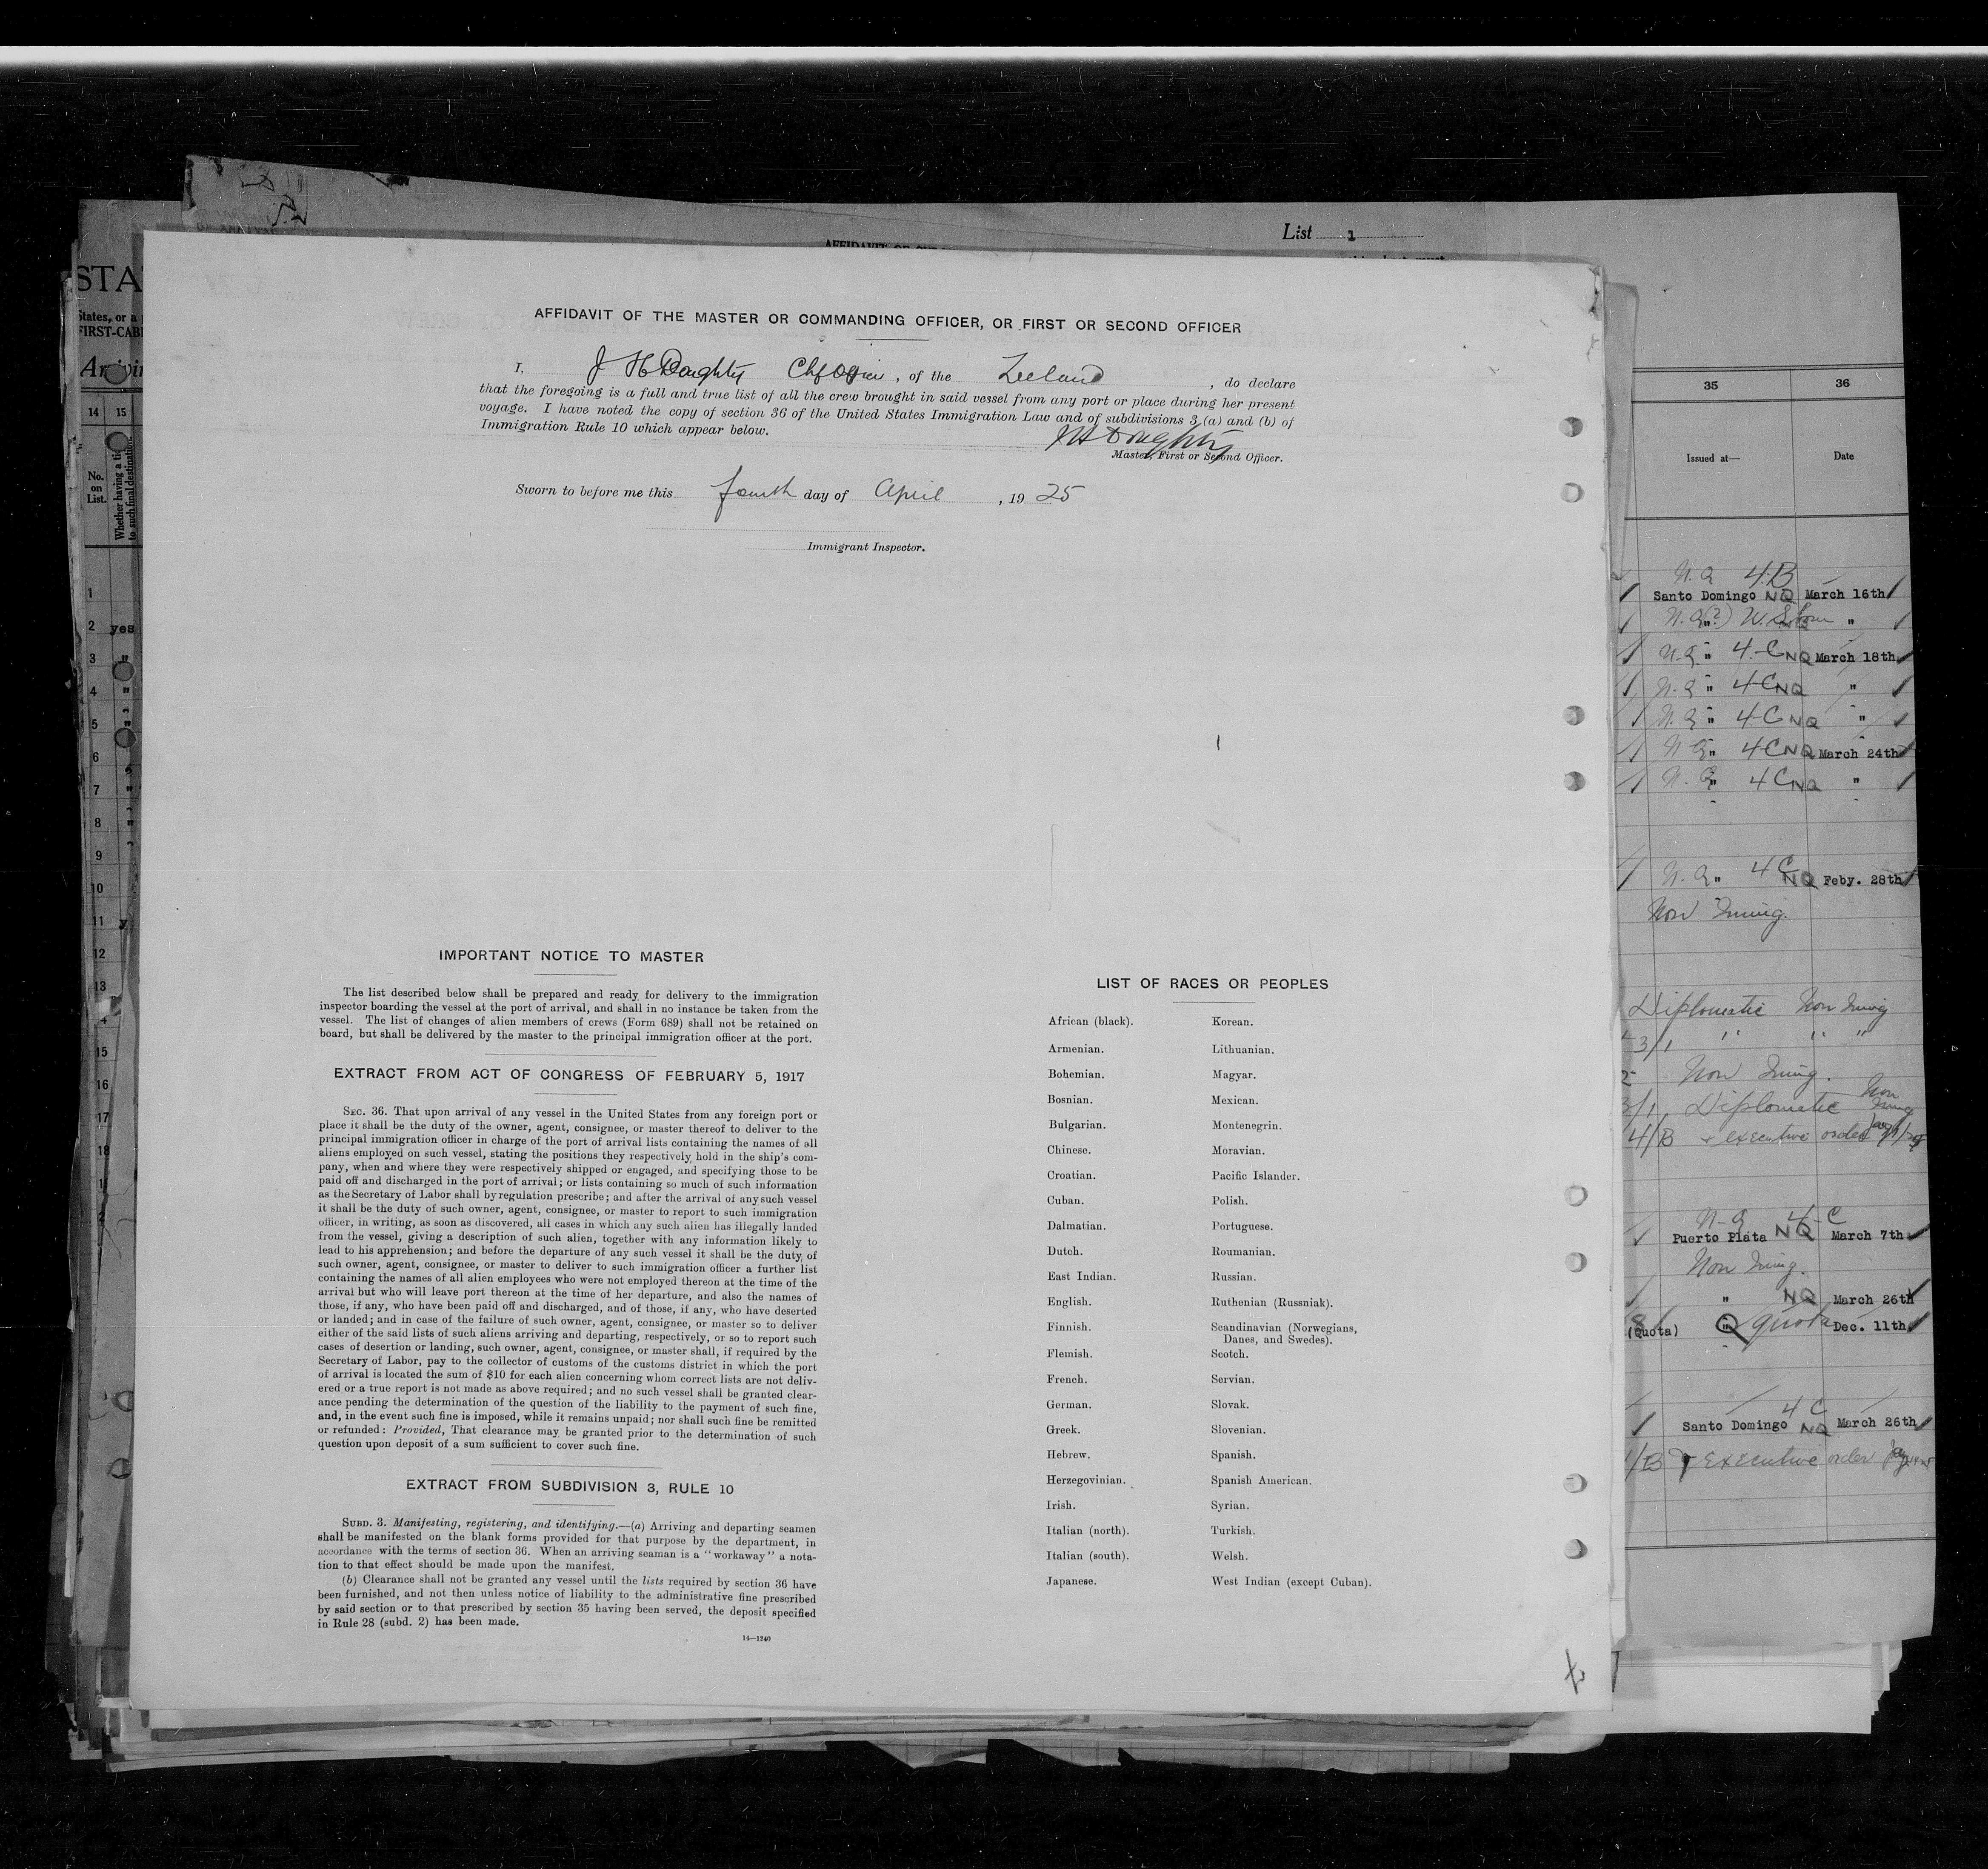 List 1
STA
States, or a
FIRST-CAB
14 15
No. on List.
Whether having a ti
to such final destination.
1
2 yes
3 "
4 "
5 "
6 "
7 "
8 "
9
10
11 y
12
13
15
16
17
18
AFFIDAVIT OF THE MASTER OR COMMANDING OFFICER, OR FIRST OR SECOND OFFICER
I, J H Doughty Chf Officer, of the Zeeland, do declare
that the foregoing is a full and true list of all the crew brought in said vessel from any port or place during her present
voyage. I have noted the copy of section 36 of the United States Immigration Law and of subdivisions 3 (a) and (b) of
Immigration Rule 10 which appear below.
J H Doughty
Master, First or Second Officer.
Sworn to before me this fourth day of April, 1925
Immigrant Inspector.
IMPORTANT NOTICE TO MASTER
The list described below shall be prepared and ready for delivery to the immigration
inspector boarding the vessel at the port of arrival, and shall in no instance be taken from the
vessel. The list of changes of alien members of crews (Form 689) shall not be retained on
board, but shall be delivered by the master to the principal immigration officer at the port.
EXTRACT FROM ACT OF CONGRESS OF FEBRUARY 5, 1917
SEC. 36. That upon arrival of any vessel in the United States from any foreign port or
place it shall be the duty of the owner, agent, consignee, or master thereof to deliver to the
principal immigration officer in charge of the port of arrival lists containing the names of all
aliens employed on such vessel, stating the positions they respectively hold in the ship's com-
pany, when and where they were respectively shipped or engaged, and specifying those to be
paid off and discharged in the port of arrival; or lists containing so much of such information
as the Secretary of Labor shall by regulation prescribe; and after the arrival of any such vessel
it shall be the duty of such owner, agent, consignee, or master to report to such immigration
officer, in writing, as soon as discovered, all cases in which any such alien has illegally landed
from the vessel, giving a description of such alien, together with any information likely to
lead to his apprehension; and before the departure of any such vessel it shall be the duty of
such owner, agent, consignee, or master to deliver to such immigration officer a further list
containing the names of all alien employees who were not employed thereon at the time of the
arrival but who will leave port thereon at the time of her departure, and also the names of
those, if any, who have been paid off and discharged, and of those, if any, who have deserted
or landed; and in case of the failure of such owner, agent, consignee, or master so to deliver
either of the said lists of such aliens arriving and departing, respectively, or so to report such
cases of desertion or landing, such owner, agent, consignee, or master shall, if required by the
Secretary of Labor, pay to the collector of customs of the customs district in which the port
of arrival is located the sum of $10 for each alien concerning whom correct lists are not deliv-
ered or a true report is not made as above required; and no such vessel shall be granted clear-
ance pending the determination of the question of the liability to the payment of such fine,
and, in the event such fine is imposed, while it remains unpaid; nor shall such fine be remitted
or refunded: Provided, That clearance may be granted prior to the determination of such
question upon deposit of a sum sufficient to cover such fine.
EXTRACT FROM SUBDIVISION 3, RULE 10
SUBD. 3. Manifesting, registering, and identifying.—(a) Arriving and departing seamen
shall be manifested on the blank forms provided for that purpose by the department, in
accordance with the terms of section 36. When an arriving seaman is a "workaway" a nota-
tion to that effect should be made upon the manifest.
(b) Clearance shall not be granted any vessel until the lists required by section 36 have
been furnished, and not then unless notice of liability to the administrative fine prescribed
by said section or to that prescribed by section 35 having been served, the deposit specified
in Rule 28 (subd. 2) has been made.
14—1240
LIST OF RACES OR PEOPLES
African (black). Korean.
Armenian. Lithuanian.
Bohemian. Magyar.
Bosnian. Mexican.
Bulgarian. Montenegrin.
Chinese. Moravian.
Croatian. Pacific Islander.
Cuban. Polish.
Dalmatian. Portuguese.
Dutch. Roumanian.
East Indian. Russian.
English. Ruthenian (Russniak).
Finnish. Scandinavian (Norwegians,
Danes, and Swedes).
Flemish. Scotch.
French. Servian.
German. Slovak.
Greek. Slovenian.
Hebrew. Spanish.
Herzegovinian. Spanish American.
Irish. Syrian.
Italian (north). Turkish.
Italian (south). Welsh.
Japanese. West Indian (except Cuban).
35 36
Issued at— Date
N.Q 4.B
Santo Domingo NQ March 16th
N.Q " (?) NQ "
N.Q " 4-C NQ March 18th
N.Q " 4C NQ "
N.Q " 4C NQ "
N Q " 4C NQ March 24th
N.Q " 4C NQ "
N.Q " 4C NQ Feby. 28th
Non Immig.
Diplomatic Non Immig
3/1 " " "
Non Immig.
3/1 Diplomatic Non Immig
4/B + executive order
N-Q 4-C
Puerto Plata NQ March 7th
Non Immig.
" NQ March 26th
(Quota) " Q quota Dec. 11th
4 C
Santo Domingo NQ March 26th
/B + executive order